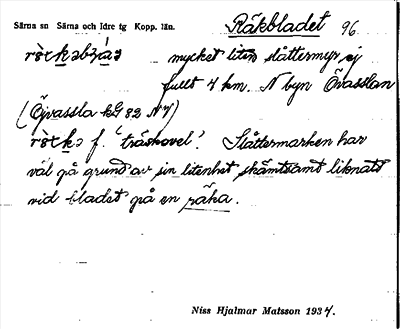 Särna sn Särna och Idre tg Kopp. län. Räkbladet 96
mycket liten slåttermyr, ej
fullt 4 km. N byn Övasslan
(Öjvassla kG 82 N4)
f. 'träskovel'. Slåttermarken har
väl på grund av sin litenhet skämtsamt liknats
vid bladet på en räka.
Niss Hjalmar Matsson 1934.